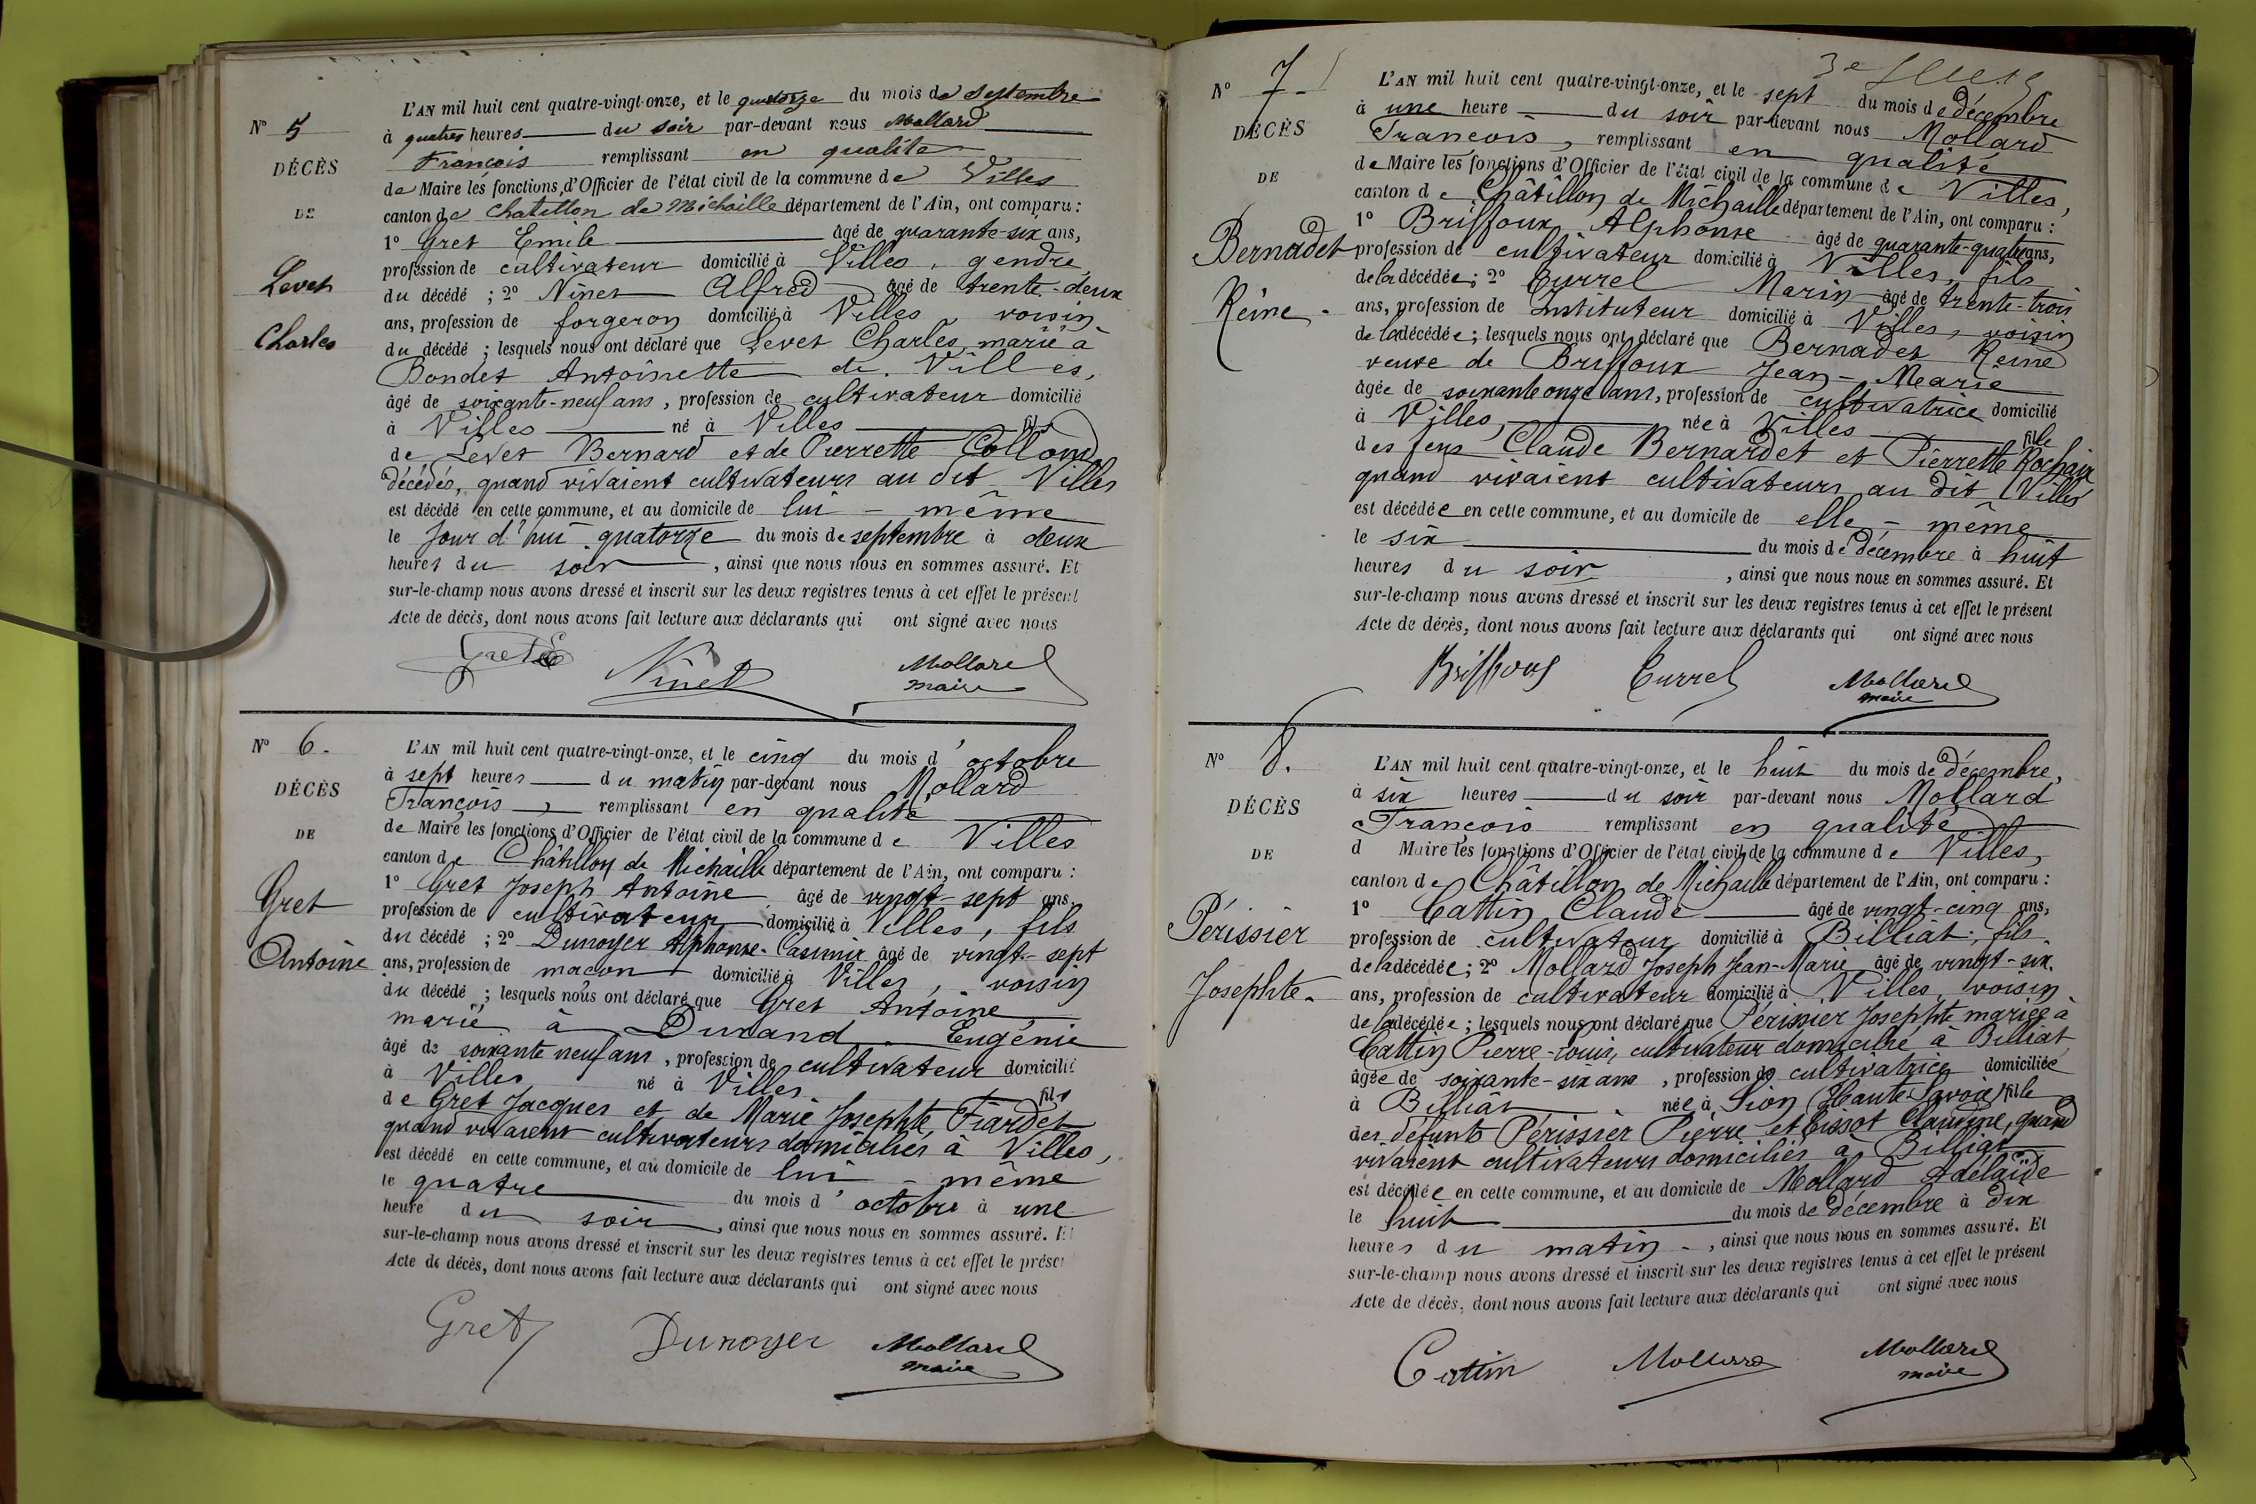 N° 5
DÉCÈS
DE
Levet
Charles
L'AN mil huit cent quatre-vingt-onze, et le quatorze du mois de septembre
à quatres heures du soir par-devant nous Mollard
François remplissant en qualité
de Maire les fonctions d'Officier de l'état civil de la commune de Villes
canton de Chatillon de Michaille département de l'Ain, ont comparu :
1° Gret Emile âgé de quarante-six ans,
profession de cultivateur domicilié à Villes, gendre
du décédé ; 2° Ninet Alfred âgé de trente-deux
ans, profession de forgeron domicilié à Villes, voisin
du décédé ; lesquels nous ont déclaré que Levet Charles, marié à
Bondet Antoinette de Villes,
âgé de soixante-neuf ans, profession de cultivateur domicilié
à Villes né à Villes fils
de Levet Bernard et de Pierrette Collomb
décédés, quand vivaient cultivateurs au dit Villes
est décédé en cette commune, et au domicile de lui-même
le jour d'hui quatorze du mois de septembre à deux
heures du soir, ainsi que nous nous en sommes assuré. Et
sur-le-champ nous avons dressé et inscrit sur les deux registres tenus à cet effet le présent
Acte de décès, dont nous avons fait lecture aux déclarants qui ont signé avec nous
Gret E Ninet Mollard
maire
N° 6.
DÉCÈS
DE
Gret
Antoine
L'AN mil huit cent quatre-vingt-onze, et le cinq du mois d'octobre
à sept heures du matin par-devant nous Mollard
François, remplissant en qualité
de Maire les fonctions d'Officier de l'état civil de la commune de Villes
canton de Châtillon de Michaille département de l'Ain, ont comparu :
1° Gret Joseph Antoine âgé de vingt-sept ans,
profession de cultivateur domicilié à Villes, fils
du décédé ; 2° Dunoyer Alphonse-Casimir âgé de vingt-sept
ans, profession de maçon domicilié à Villes, voisin
du décédé ; lesquels nous ont déclaré que Gret Antoine
marié à Durand Eugénie
âgé de soixante neuf ans, profession de cultivateur domicilié
à Villes né à Villes fils
de Gret Jacques et de Marie Josephte Fiardet
quand vivaient cultivateurs domiciliés à Villes,
est décédé en cette commune, et au domicile de lui-même
le quatre du mois d'octobre à une
heure du soir, ainsi que nous nous en sommes assuré. Et
sur-le-champ nous avons dressé et inscrit sur les deux registres tenus à cet effet le présent
Acte de décès, dont nous avons fait lecture aux déclarants qui ont signé avec nous
Gret Dunoyer Mollard
maire
3e
N° 7
DÉCÈS
DE
Bernadet
Reine.
L'AN mil huit cent quatre-vingt-onze, et le sept du mois de décembre
à une heure du soir par-devant nous Mollard
François, remplissant en qualité
de Maire les fonctions d'Officier de l'état civil de la commune de Villes,
canton de Châtillon de Michaille département de l'Ain, ont comparu :
1° Briffoux Alphonse âgé de quarante-quatre ans,
profession de cultivateur domicilié à Villes, fils
de la décédée ; 2° Currel Marin âgé de trente-trois
ans, profession de Instituteur domicilié à Villes, voisin
de la décédée ; lesquels nous ont déclaré que Bernadet Reine
veuve de Briffoux Jean-Marie
âgée de soixante onze ans, profession de cultivatrice domicilié
à Villes, née à Villes fille
des feus Claude Bernardet et Pierrette Rochaix
quand vivaient cultivateurs au dit Villes
est décédée en cette commune, et au domicile de elle-même
le six du mois de décembre à huit
heures du soir, ainsi que nous nous en sommes assuré. Et
sur-le-champ nous avons dressé et inscrit sur les deux registres tenus à cet effet le présent
Acte de décès, dont nous avons fait lecture aux déclarants qui ont signé avec nous
Briffoux Currel Mollard
maire
N° 8.
DÉCÈS
DE
Périssier
Josephte.
L'AN mil huit cent quatre-vingt-onze, et le huit du mois de décembre,
à six heures du soir par-devant nous Mollard
François remplissant en qualité
d Maire les fonctions d'Officier de l'état civil de la commune de Villes,
canton de Châtillon de Michaille département de l'Ain, ont comparu :
1° Cattin Claude âgé de vingt-cinq ans,
profession de cultivateur domicilié à Billiat, fils
de la décédée ; 2° Mollard Joseph Jean-Marie âgé de vingt-six
ans, profession de cultivateur domicilié à Villes, voisin
de la décédée ; lesquels nous ont déclaré que Périssier Josephte mariée à
Cattin Pierre-Louis, cultivateur domicilié à Billiat
âgée de soixante-six ans, profession de cultivatrice domiciliée
à Billiat née à Sion (Haute-Savoie) fille
des défunts Périssier Pierre et Cissot Claudine, quand
vivaient cultivateurs domiciliés à Billiat
est décédée en cette commune, et au domicile de Mollard Adélaïde
le huit du mois de décembre à dix
heures du matin, ainsi que nous nous en sommes assuré. Et
sur-le-champ nous avons dressé et inscrit sur les deux registres tenus à cet effet le présent
Acte de décès, dont nous avons fait lecture aux déclarants qui ont signé avec nous
Cattin Mollard Mollard
maire